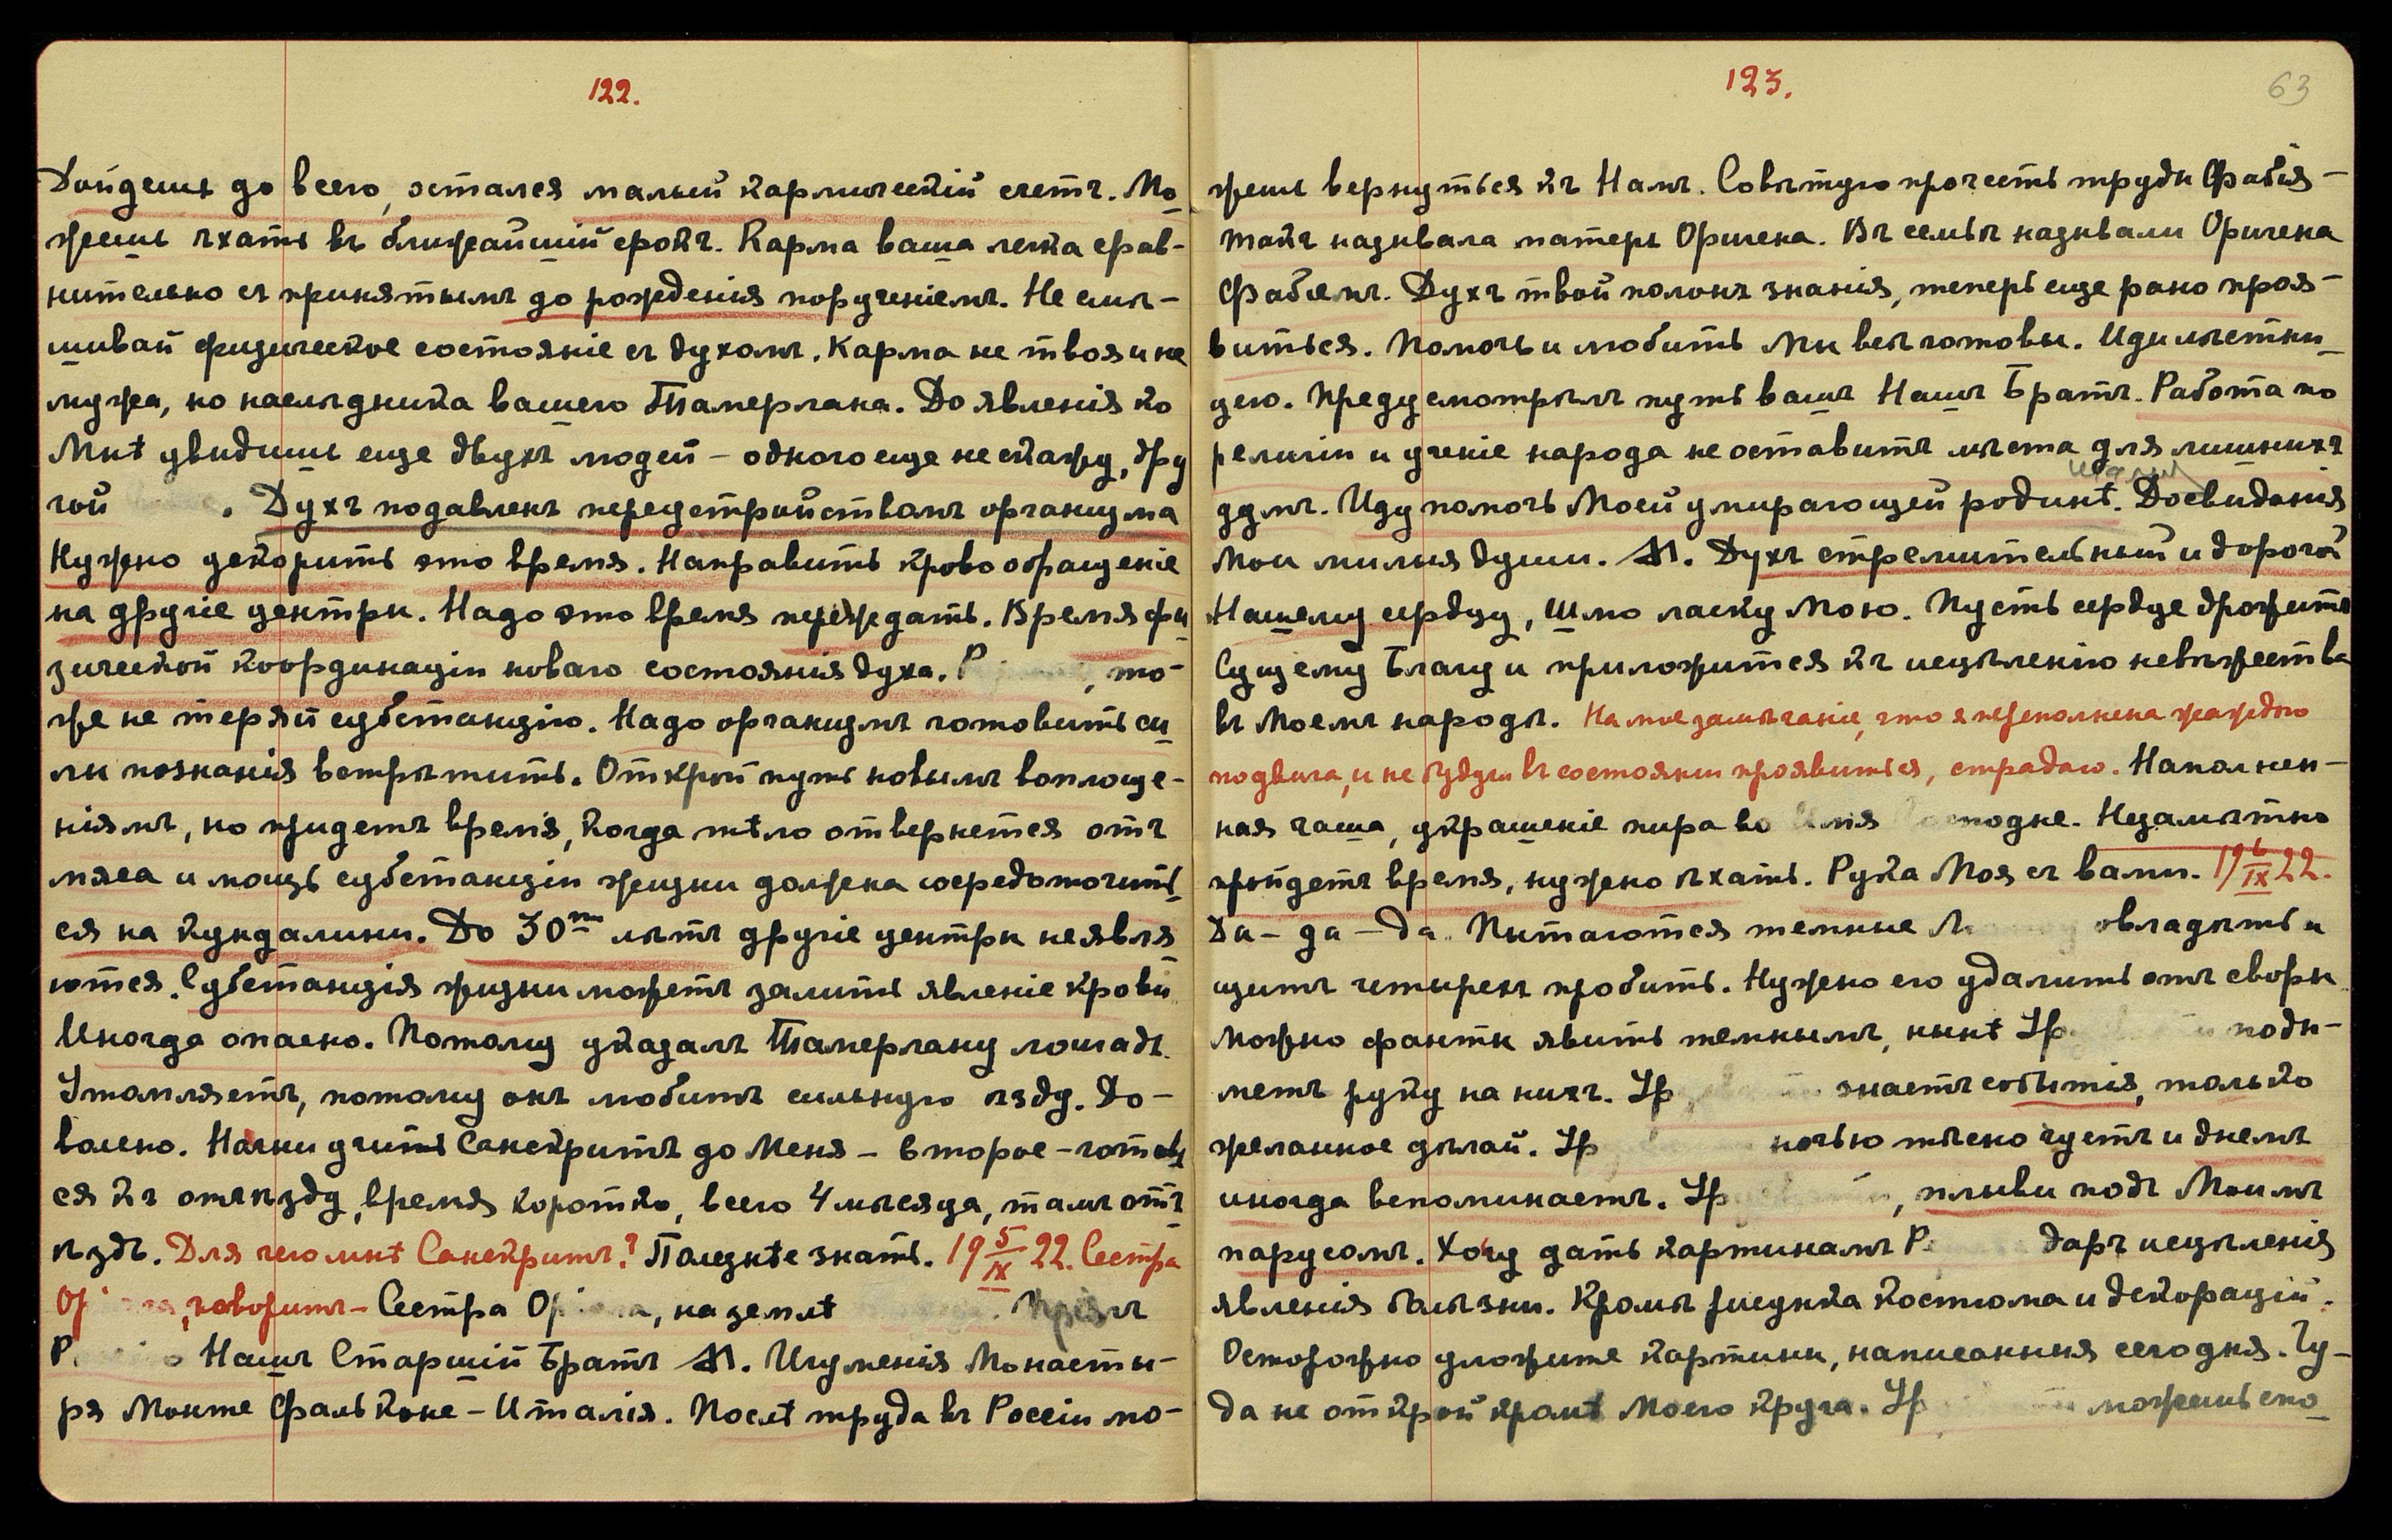 122.
Дойдешь до всего, остался малый кармический счетъ. Мо
жешь ѣхать въ ближайшій срокъ. Карма ваша легка срав-
нительно съ принятымъ до рожденія порученіемъ. Не смѣ-
шивай физическое состояніе съ духомъ. Карма не твоя и не
мужа, но наслѣдника вашего Тамерлана. До явленія ко
Мнѣ увидишь еще двухъ людей – одного еще не скажу, дру
гой . Духъ подавленъ переустройствомъ организма
Нужно ускорить это время. Направить кровообращеніе
на другіе центры. Надо это время переждать. Время фи
зической координаціи новаго состоянія духа. Р , то-
же не теряй субстанцію. Надо организмъ готовить си
лы познанія встрѣтить. Открой путь новымъ воплоще-
ніямъ, но придетъ время, когда тѣло отвернется отъ
мяса и мощь субстанціи жизни должна сосредоточить
ся на кундалини. До 30ти лѣтъ другіе центры не явля
ются. Субстанція жизни можетъ залить явленіе крови
Иногда опасно. Потому указалъ Тамерлану лошадь.
Утомляетъ, потому онъ любитъ сильную ѣзду. До-
вольно. Начни учить Санскритъ до Меня – второе – готовь
ся къ отъѣзду, время коротко, всего 4 мѣсяца, тамъ отъ
ѣздъ. Для чего мнѣ Санскритъ? Полезнѣе знать. 19 5/IX 22. Сестра
Ор , говоритъ – Сестра Ор , на землѣ
Р Нашъ Старшій Братъ М. Игуменія Монасты-
ря Монте Фальконе – Италія. Послѣ труда въ Россіи мо-
123.
63
жешь вернуться къ Намъ. Совѣтую прочесть труды Фабія –
такъ называла матерь Оригена. Въ семьѣ называли Оригена
Фабіемъ. Духъ твой полонъ знанія, теперь еще рано проя-
виться. Помочь и любить Мы всѣ готовы. Иди лѣстни
цею. Предусмотрѣлъ путь вашъ Нашъ Братъ. Работа по
религіи и ученіе народа не оставитъ мѣста для лишнихъ
думъ. Иду помочь Моей умирающей родинѣ. Досвиданія
мои милыя души. М. Духъ стремительный и дорогой
Нашему сердцу, шлю ласку Мою. Пусть сердце дрожитъ
Сущему Благу и приложится къ исцѣленію невѣжества
въ Моемъ народѣ. На мое замѣчаніе, что я переполнена жаждою
подвига, и не будучи въ состояніи проявиться, страдаю. Наполнен-
ная чаша, украшеніе пира во Имя Господне. Незамѣтно
прійдетъ время, нужно ѣхать. Рука Моя съ вами. 19 6/IX 22.
Да – да – да. Пытаются темные М овладѣть и
щитъ четырехъ пробить. Нужно его удалить отъ своры
можно факты явить темнымъ, нынѣ Ур поды-
метъ руку на нихъ. Ур знаетъ событія, только
желанное дѣлай. Ур ночью тѣсно чуетъ и днемъ
иногда вспоминаетъ. Ур , плыви подъ Моимъ
парусомъ. Хочу дать картинамъ Р даръ исцѣленія
явленія болѣзни. Кромѣ рисунка костюма и декорацій.
Осторожно уложите картины, написанныя сегодня. Чу-
да не открой кромѣ Моего круга. Ур можешь ско